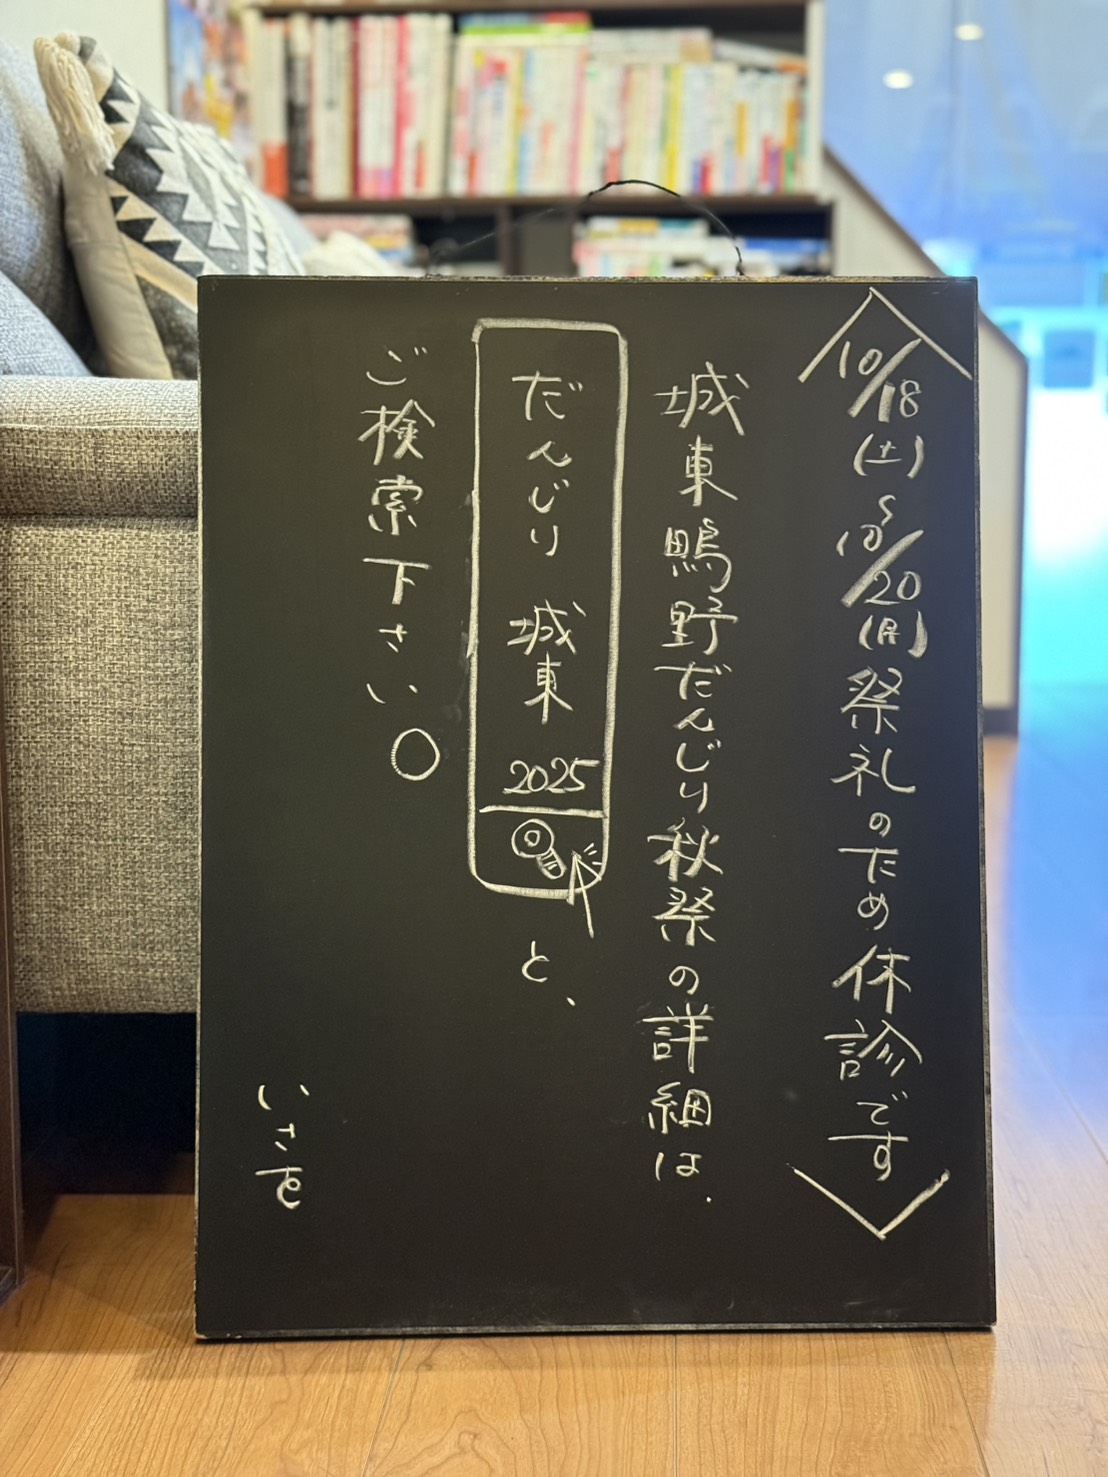 〈10/18(土)〜10/20(月)祭礼のため休診です〉
城東鴫野だんじり秋祭の詳細は、
だんじり 城東 2025 と、
ご検索下さい。